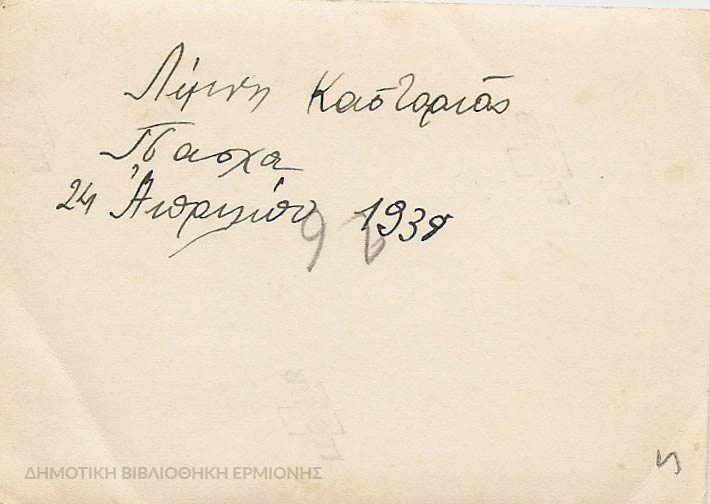 Λίμνη Καστοριάς
Πάσχα
24 Απριλίου 1938
ΔΗΜΟΤΙΚΗ ΒΙΒΛΙΟΘΗΚΗ ΕΡΜΙΟΝΗΣ